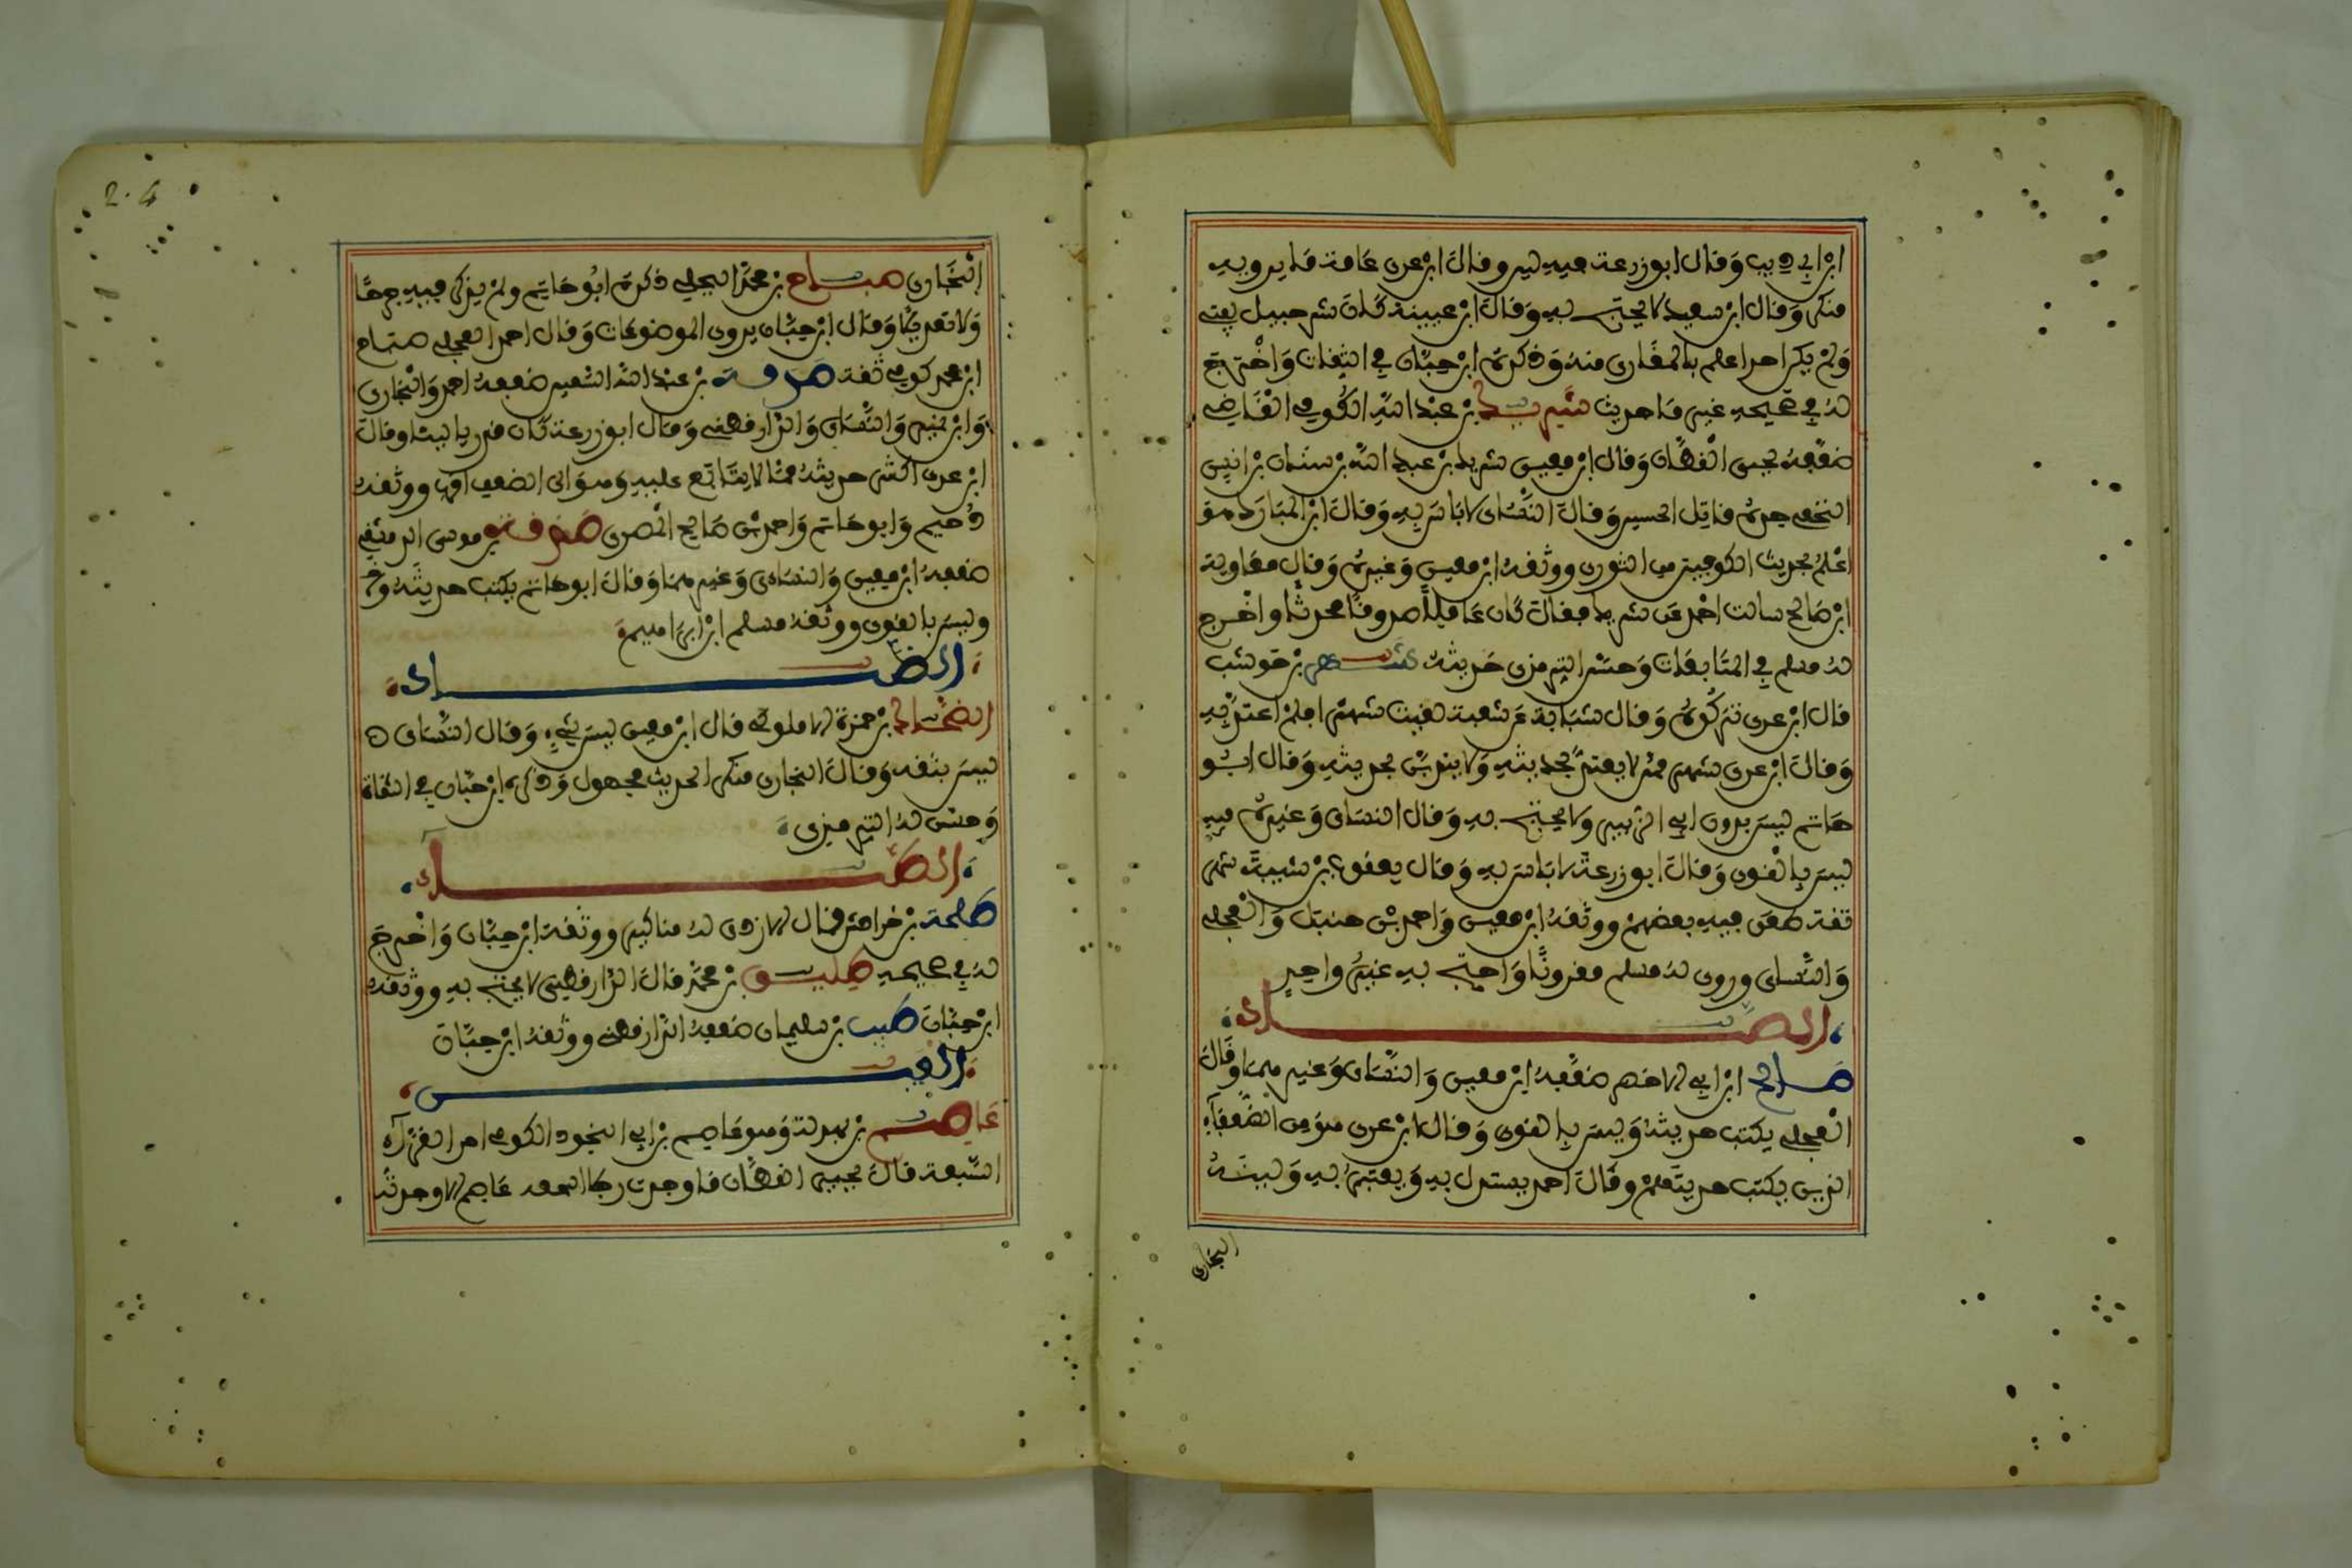 ابن ابي ذيب وقال ابو زرعة فيه لين وقال ابن عدي عامة ما يرويه
منكر وقال ابن سعيد لا يحتج به وقال ابن عيينة كان شرحبيل يفتي
ولم يكن احد اعلم بالمغازي منه وذكره ابن حبان في الثقات واخرج
له في صحيحه غير ما حديث شريك بن عبد الله الكوفي القاضي
ضعفه يحيى القطان وقال ابن معين شريك بن عبد الله بن سنان بن انس
النخعي جده قاتل الحسين وقال النسائي لا باس به وقال ابن المبارك هو
اعلم بحديث الكوفيين من الثوري ووثقه ابن معين وغيره وقال معاوية
ابن صالح سالت احمد عن شريك فقال كان عاقلا صدوقا محدثا واخرج
له مسلم في المتابعات وحسن الترمذي حديثه شهر بن حوشب
قال ابن عدي تركوه وقال شبابة عن شعبة لقيت شهرا فلم اعتد به
وقال ابن عدي شهر ممن لا يعتد بحديثه ولا يتدين بحديثه وقال ابو
حاتم ليس بدون ابي الزبير ولا يحتج به وقال النسائي وغيره فيه
ليس بالقوي وقال ابو زرعة لا باس به وقال يعقوب بن شيبة شهر
ثقة طعن فيه بعضهم ووثقه ابن معين واحمد بن حنبل والعجلي
والنسائي وروى له مسلم مقرونا واحتج به غير واحد
الصاد
صالح ابن ابي الاخضر ضعفه ابن معين والنسائي وغيرهما وقال
العجلي يكتب حديثه وليس بالقوي وقال ابن عدي هو من الضعفاء
الذين يكتب حديثهم وقال احمد يستدل به ويعتبر به ولينه
البخاري
البخاري صباح بن محمد البجلي ذكره ابو حاتم ولم يذكر فيه جرحا
ولا تعديلا وقال ابن حبان يروي الموضوعات وقال احمد العجلي صباح
ابن محمد كوفي ثقة صدقة بن عبد الله السمين ضعفه احمد والبخاري
وابن نمير والنسائي والدارقطني وقال ابو زرعة كان قدريا لينا وقال
ابن عدي اكثر حديثه مما لا يتابع عليه وهو الى الضعف اقرب ووثقه
دحيم وابو حاتم واحمد بن صالح المصري صدقة بن موسى الدقيقي
ضعفه ابن معين والنسائي وغيرهما وقال ابو حاتم يكتب حديثه
وليس بالقوي ووثقه مسلم ابن ابراهيم
الضاد
الضحاك بن حمزة الاملوكي قال ابن معين ليس بشيء وقال النسائي
ليس بثقة وقال البخاري منكر الحديث مجهول وذكره ابن حبان في الثقاة
وحسن له الترمذي
الطاء
طلحة بن خراش قال الازدي له مناكير ووثقه ابن حبان واخرج
له في صحيحه طليق بن محمد قال الدارقطني لا يحتج به ووثقه
ابن حبان طيب بن سليمان ضعفه الدارقطني ووثقه ابن حبان
العين
عاصم بن بهدلة وهو عاصم بن ابي النجود الكوفي احد القراء
السبعة قال يحيى القطان ما وجدت رجلا اسمه عاصم الا وجدته